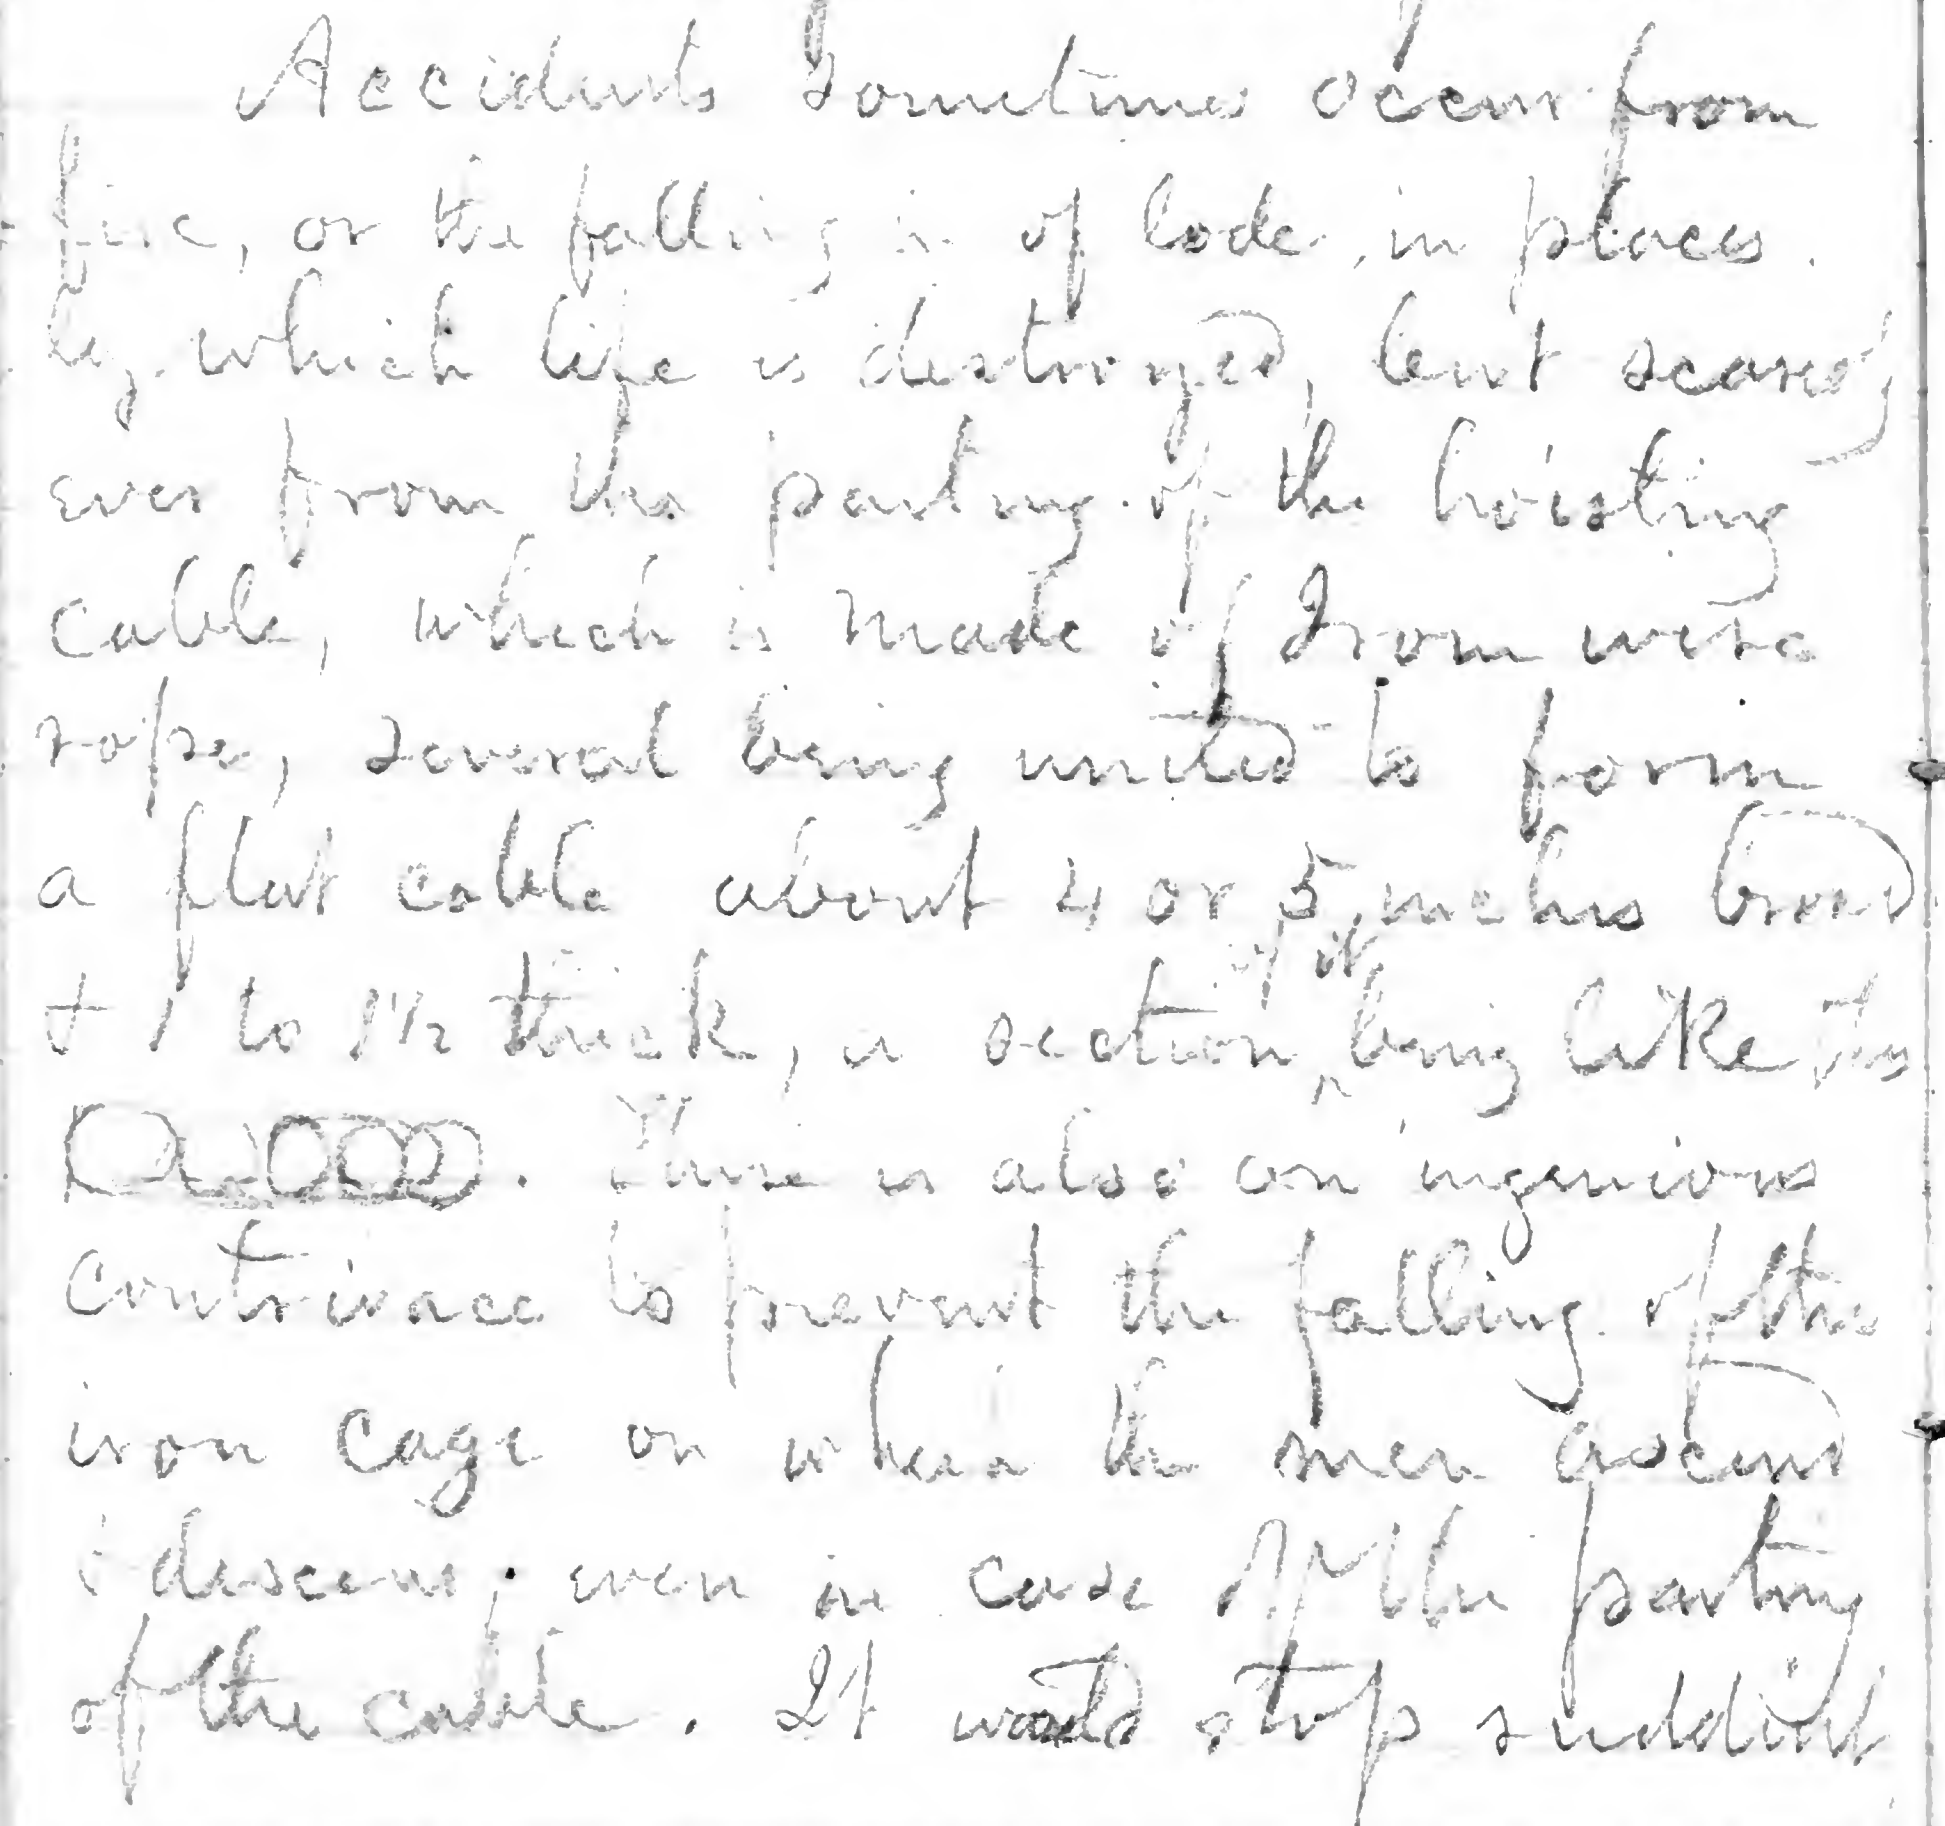 Accidents Sometimes occur from
fire, or the falling in of lode, in places.
by which life is destroyed, but scarcely
ever from the parting of the hoisting
cable, which is made of Iron wire
rope, several being united to form
a flat cable about 4 or 5 inches broad
+ 1 to 1½ thick, a section of it being like this
. There is also an ingenious
contrivace to prevent the falling of the
iron cage on which the men ascend
& descend; even in case of the parting
of the cable. It would stop suddenly